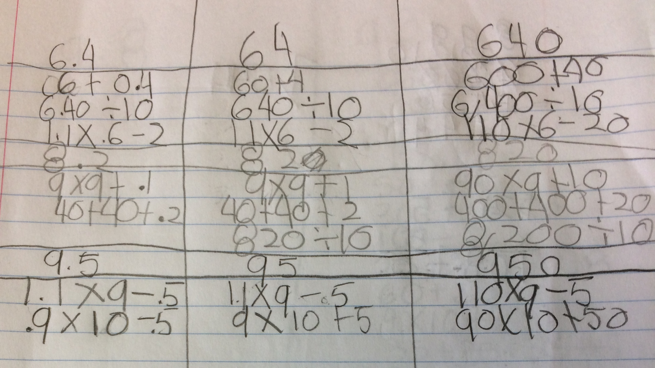 6.4 64 640
6+0.4 60+4 600+40
6.40÷10 640÷10 6,400÷10
1.1×.6-2 11×6-2 110×6-20
8.2 820 820
9×9+.1 9×9+1 90×9+10
40+40+.2 40+40+2 400+400+20
820÷10 8,200÷10
9.5 95 950
1.1×9-.5 1.1×9-.5 110×9-5
.9×10-.5 9×10+5 90×10+50